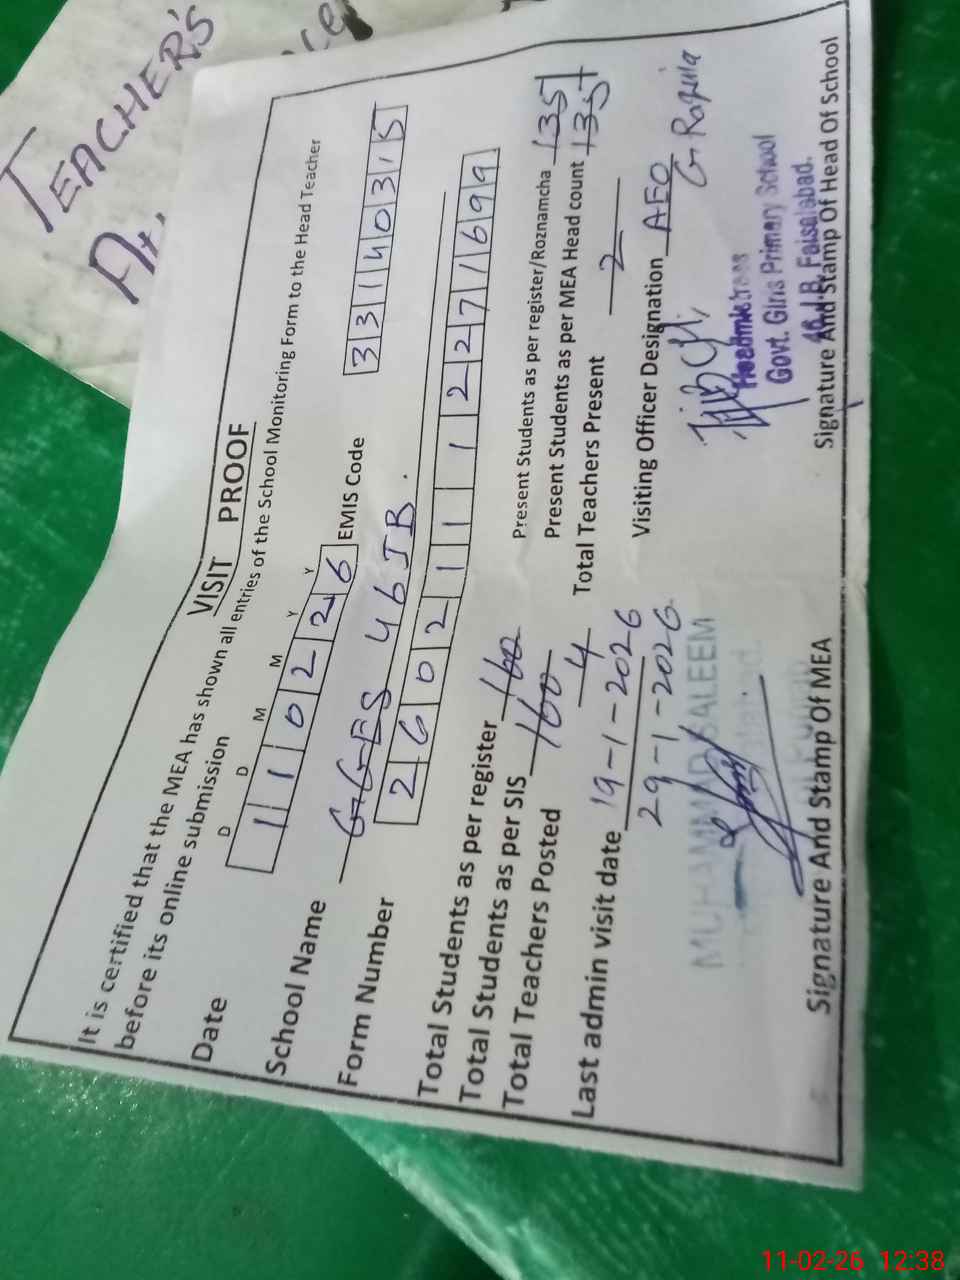 TEACHER'S
VISIT PROOF
It is certified that the MEA has shown all entries of the School Monitoring Form to the Head Teacher
before its online submission
D D M M Y Y
Date 1 1 0 2 2 6 EMIS Code 3 3 1 4 0 3 1 5
School Name GGES 46 JB.
Form Number 2 6 0 2 1 1 1 1 2 2 7 1 6 9 9
Total Students as per register 160 Present Students as per register/Roznamcha 135
Total Students as per SIS 160 Present Students as per MEA Head count 135
Total Teachers Posted 4 Total Teachers Present 2
Last admin visit date 19-1-2026 Visiting Officer Designation AEO
29-1-2026
MUHAMMAD SALEEM
Headmistress
Govt. Girls Primary School
46 J B Faisalabad.
Signature And Stamp Of MEA Signature And Stamp Of Head Of School
11-02-26 12:38